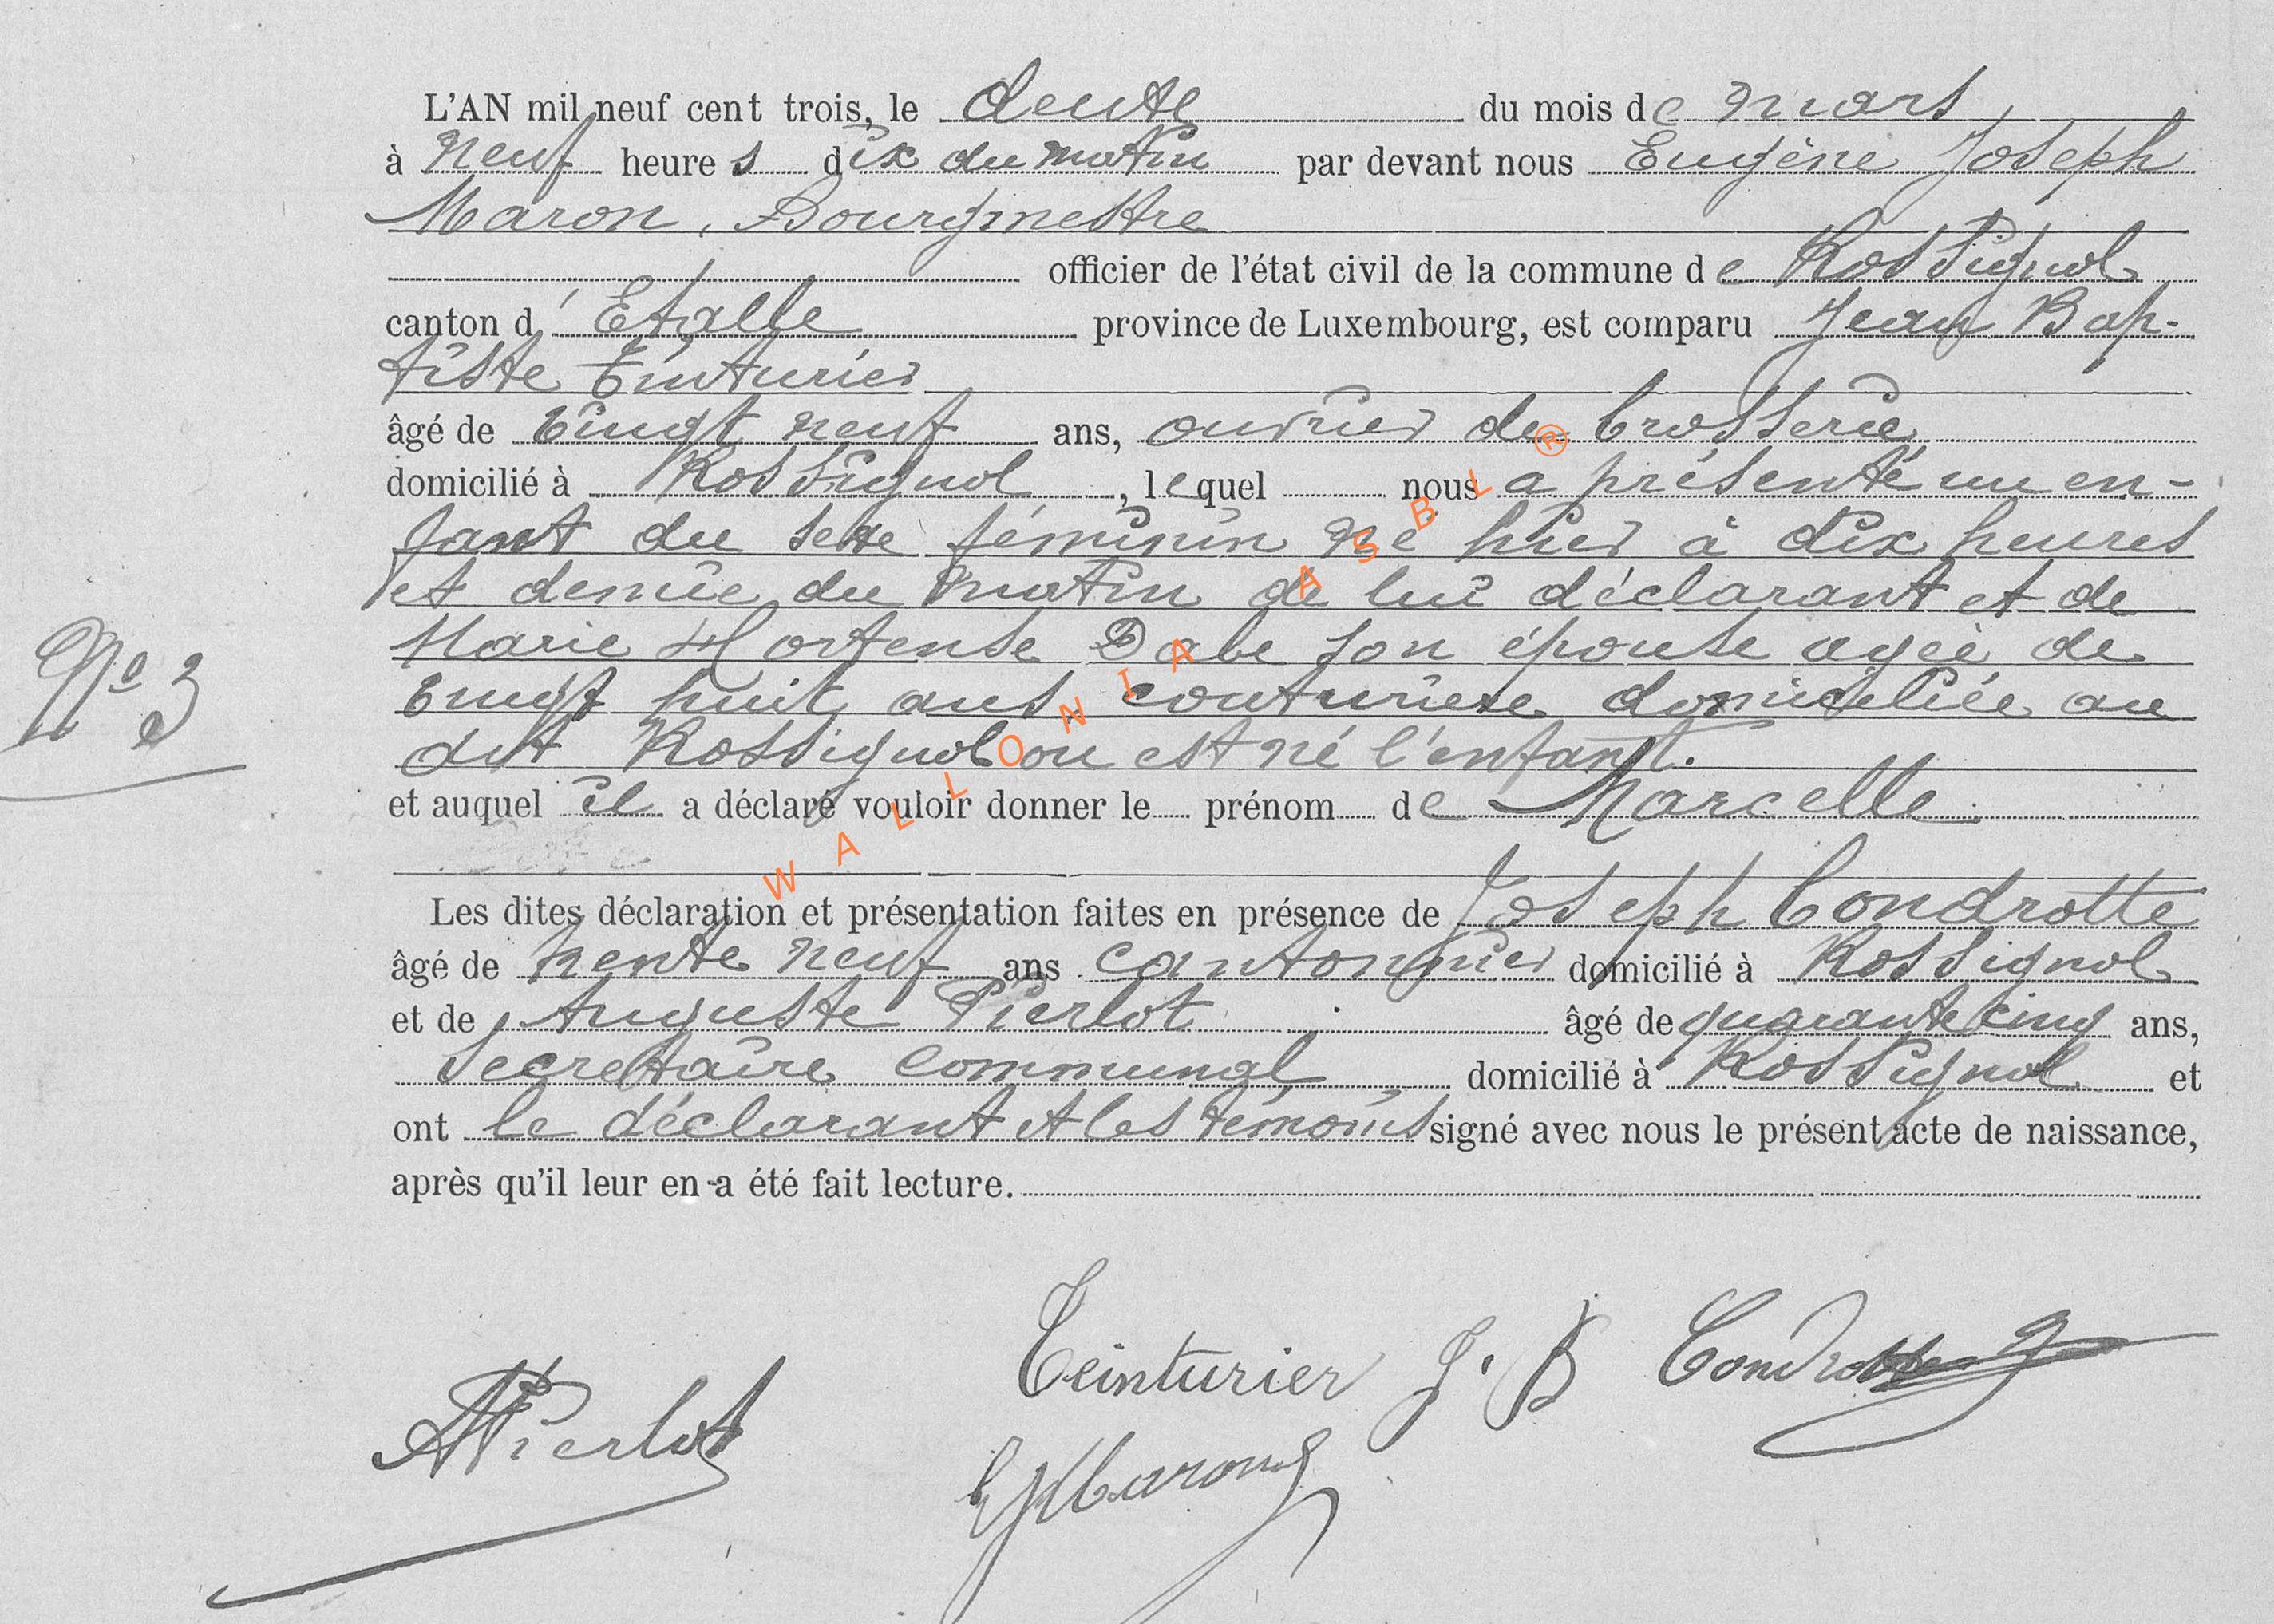 L'AN mil neuf cent trois, le deux du mois de mars
à neuf heures dix du matin par devant nous Eugène Joseph
Maron, Bourgmestre
officier de l'état civil de la commune de Rossignol
canton d'Etalle province de Luxembourg, est comparu Jean Bap-
tiste Tinturier
âgé de vingt neuf ans, ouvrier de brosserie
domicilié à Rossignol, lequel nous a présenté un en-
fant du sexe féminin né hier à dix heures
et demie du matin de lui déclarant et de
Marie Hortense Dabe son épouse agée de
N° 3
vingt huit ans couturière domiciliée au
dit Rossignol ou est né l'enfant.
et auquel il a déclaré vouloir donner le prénom de Marcelle
Les dites déclaration et présentation faites en présence de Joseph Condrotte
âgé de trente neuf ans cantonnier domicilié à Rossignol
et de Auguste Pierlot âgé de quarante cinq ans,
Secrétaire communal domicilié à Rossignol et
ont le déclarant et les témoins signé avec nous le présent acte de naissance,
après qu'il leur en a été fait lecture.
Teinturier J. B Condrotte
APierlot
EJMaron
WALLONIA ASBL ®